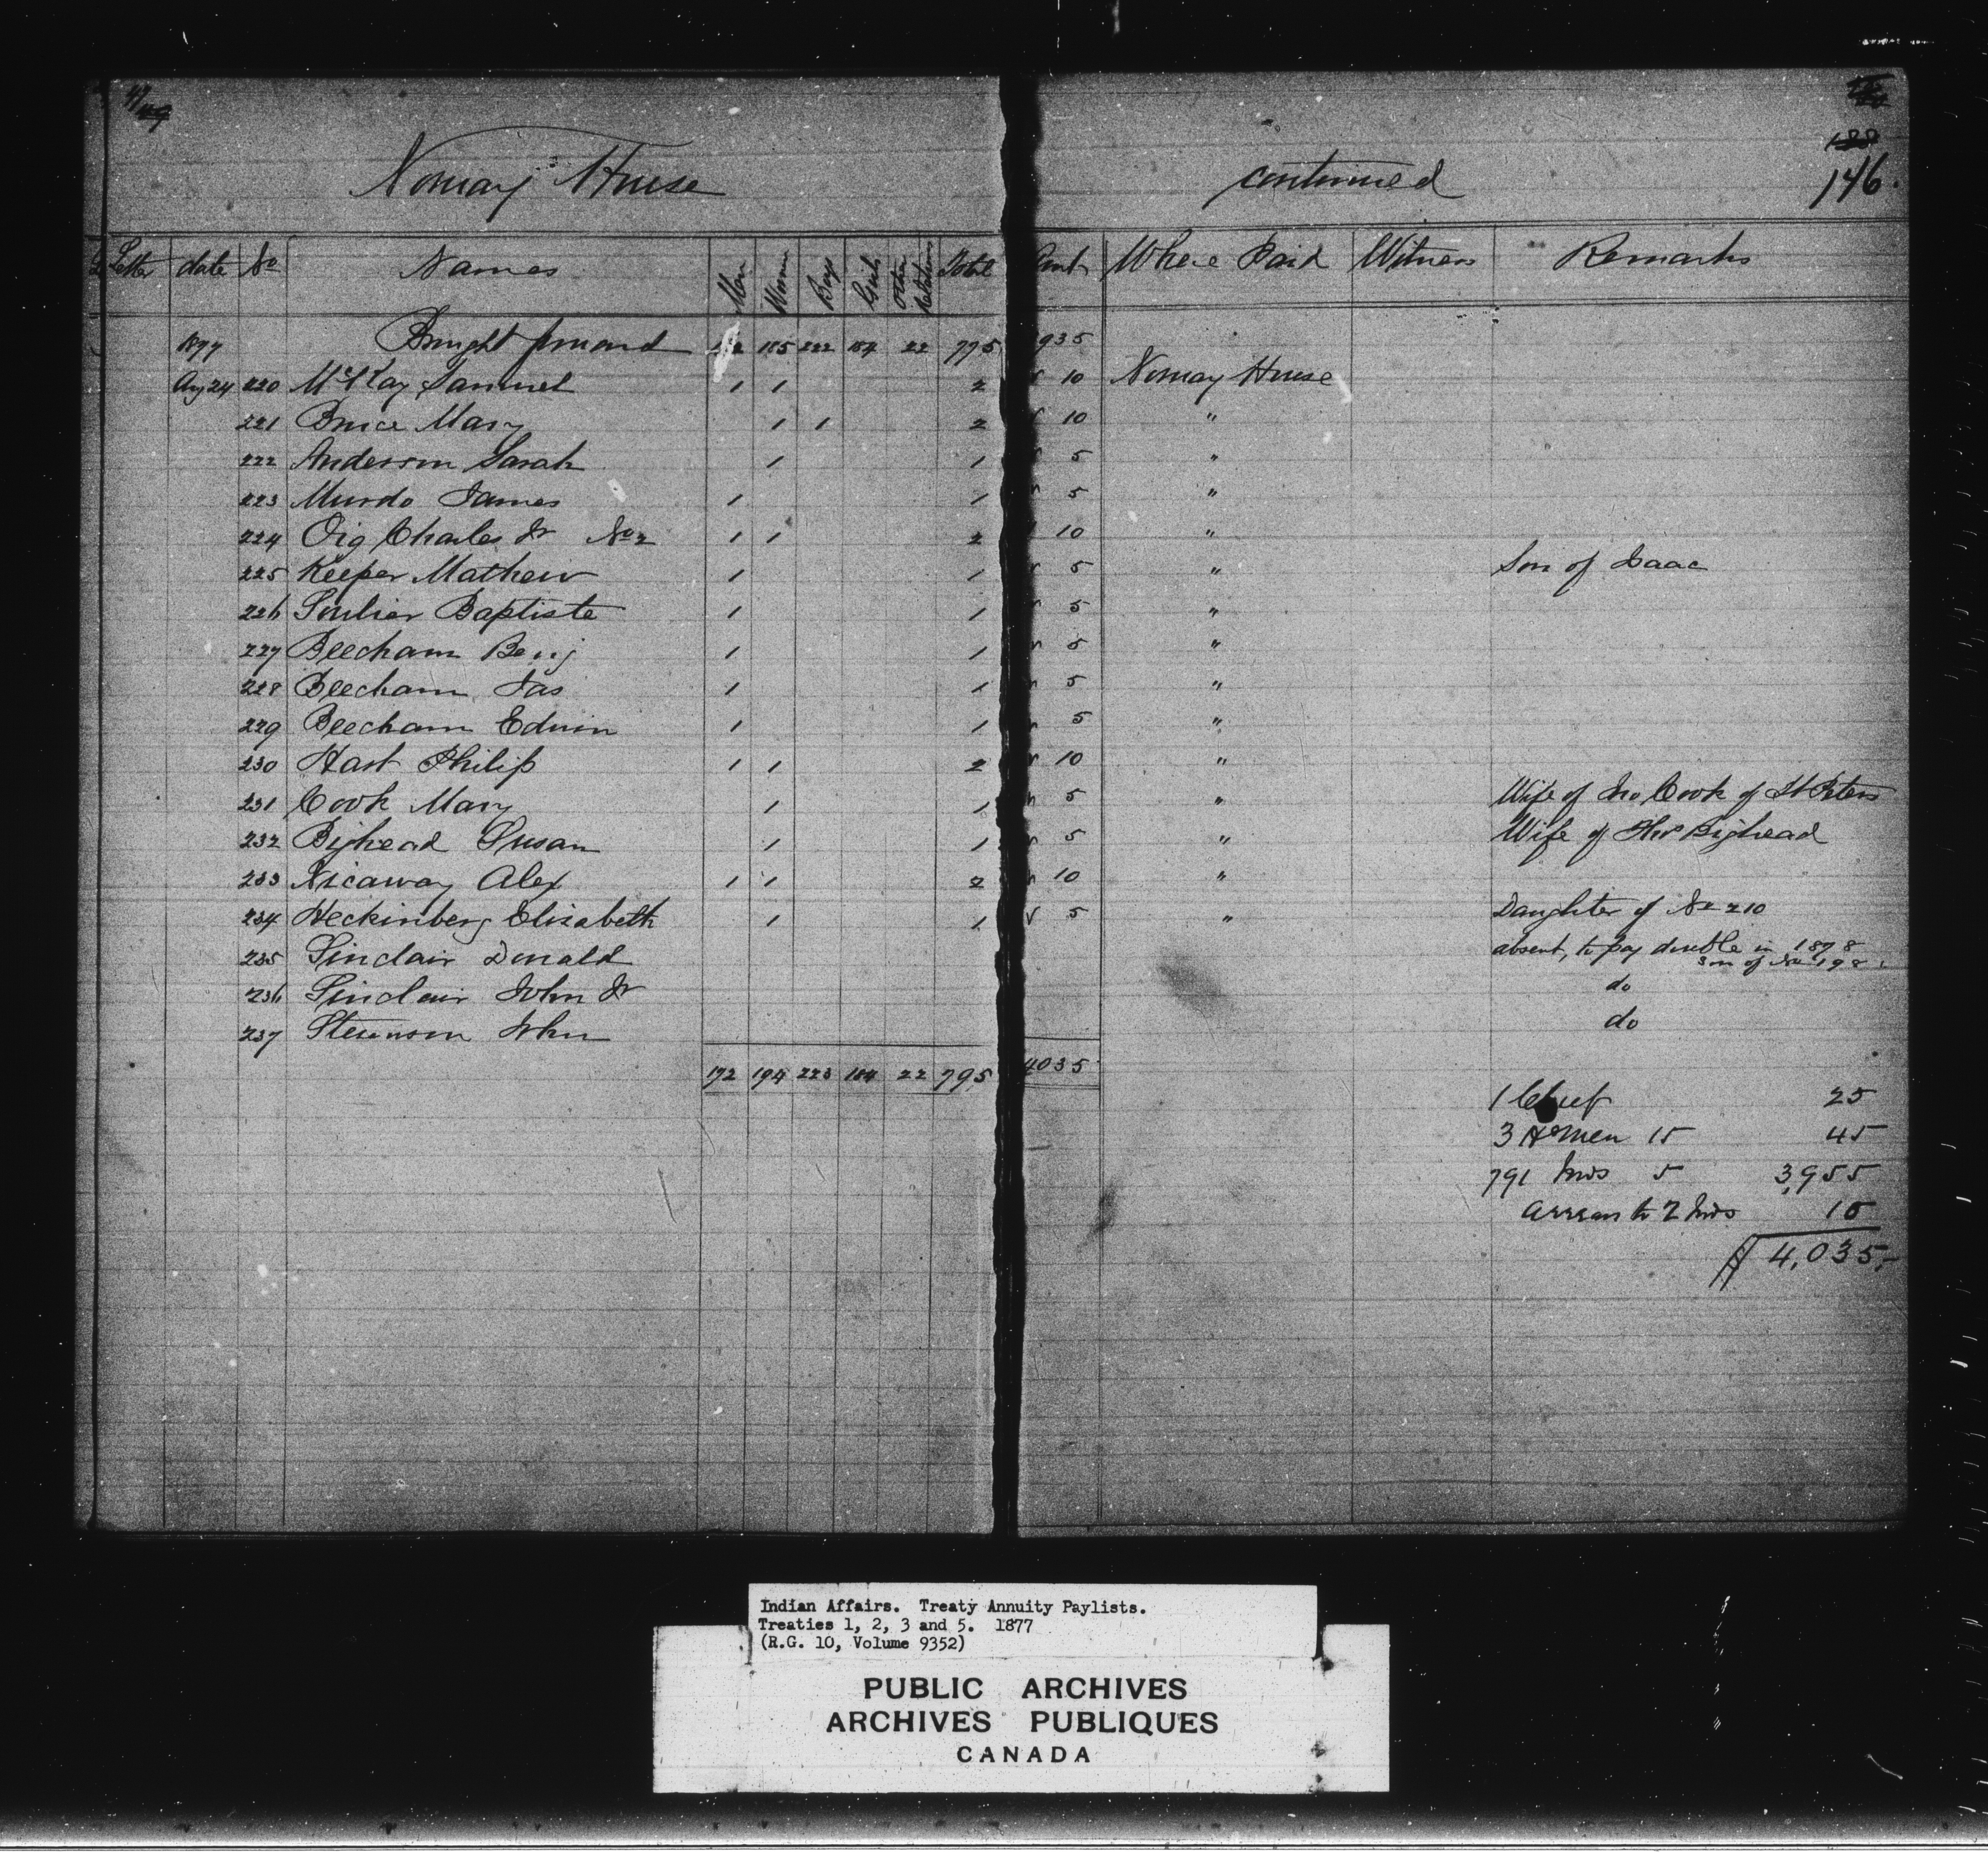 Norway House continued 146.
Letter date No Names Men Women Boys Girls Other Relations Total Amt Where Paid Witness Remarks
1877 Brought forward 185 222 184 22 775 935
Aug 24 220 McKay Samuel 1 1 2 10 Norway House
221 Bruce Mary 1 1 2 10 "
222 Anderson Sarah 1 1 5 "
223 Murdo James 1 1 5 "
224 Oig Charles Jr No 2 1 1 2 10 "
225 Keeper Mathew 1 1 5 " Son of Isaac
226 Soulier Baptiste 1 1 5 "
227 Beecham Benj 1 1 5 "
228 Beecham Jas 1 1 5 "
229 Beecham Edwin 1 1 5 "
230 Hart Philip 1 1 2 10 "
231 Cook Mary 1 1 5 " Wife of Jno Cook of St Peters
232 Bighead Susan 1 1 5 " Wife of Thos Bighead
233 Nicaway Alex 1 1 2 10 "
234 Heckinberg Elisabeth 1 1 5 " Daughter of No 210
235 Sinclair Donald absent, to pay double in 1878
son of No 198
236 Sinclair John Jr do
237 Stevenson John do
192 194 223 184 22 795 4035
1 Chief 25
3 H men 15 45
791 Inds 5 3,955
arrears to 2 Inds 10
4,035.-
Indian Affairs. Treaty Annuity Paylists.
Treaties 1, 2, 3 and 5. 1877
(R.G. 10, Volume 9352)
PUBLIC ARCHIVES
ARCHIVES PUBLIQUES
CANADA